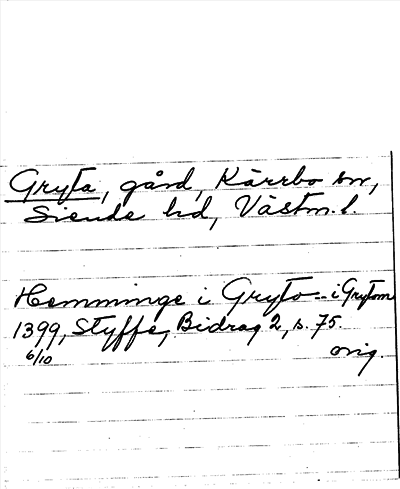 Gryta, gård, Kärrbo sn,
Siende hd, Västm. l.
Hemminge i Gryto -- i Grytom
1399, Styffe, Bidrag 2, s. 75.
6/10 orig.